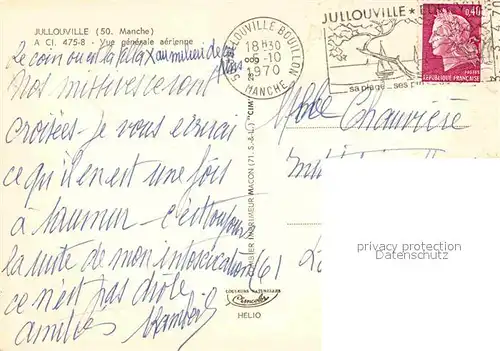 JULLOUVILLE (50. Manche)
A CI. 475-8 - Vue générale aérienne
Le coin où est la villa X au milieu de
Nos missives se sont
croisées - Je vous écrirai
ce qu'il en est une fois
à Saumur - c'est toujours
la suite de mon intoxication
ce n'est pas drôle
amitiés
JULLOUVILLE BOUILLON
18H30
-10
1970
MANCHE
JULLOUVILLE
sa plage - ses
0,40
POSTES
REPUBLIQUE FRANÇAISE
Chauvière
61
IMPRIMEUR MACON (71. S.-&-L.) "CIM"
COULEURS NATURELLES
Cimcolor
HELIO
privacy protection
Datenschutz